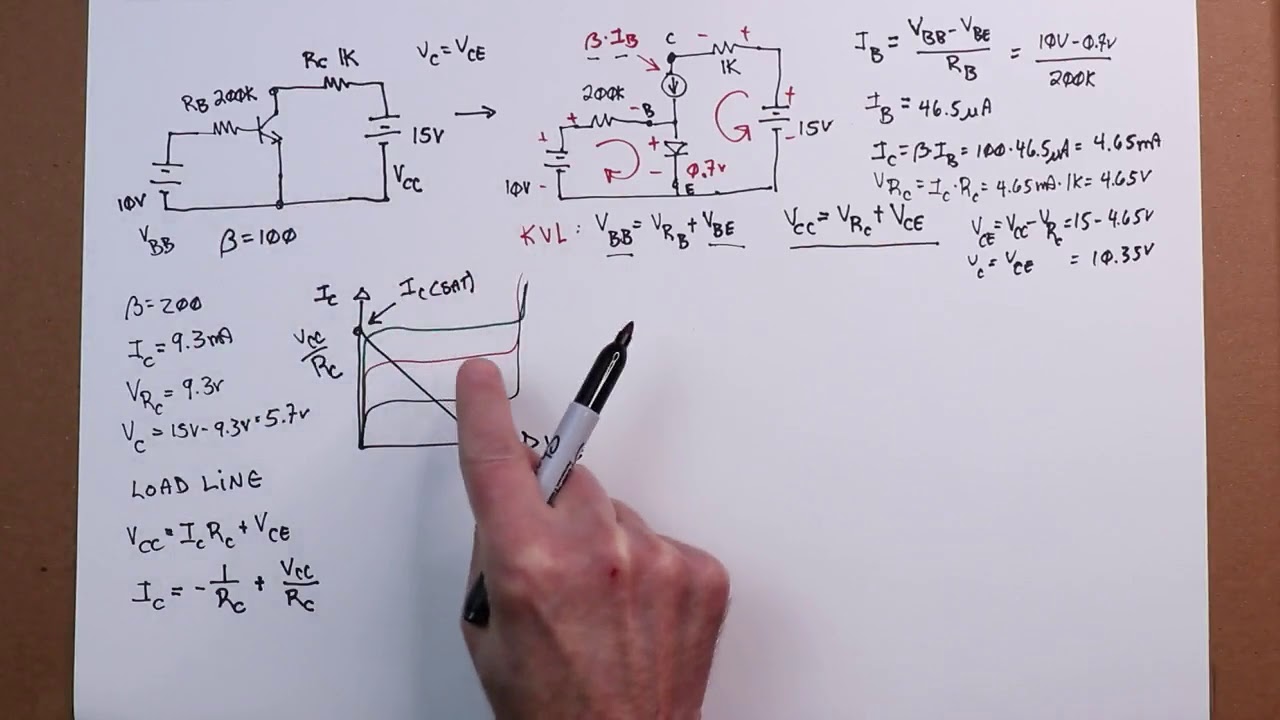 R_C 1K
V_C = V_CE
R_B 200K
15V
V_CC
10V
V_BB
β = 100
β · I_B
C
- +
1K
200K
+ - B
+
+ -
10V -
+
- 0.7V
E
+
- 15V
KVL: V_BB = V_RB + V_BE
V_CC = V_RC + V_CE
I_B = (V_BB - V_BE) / R_B = (10V - 0.7V) / 200K
I_B = 46.5μA
I_C = βI_B = 100 · 46.5μA = 4.65mA
V_RC = I_C · R_C = 4.65mA · 1K = 4.65V
V_CE = V_CC - V_RC = 15 - 4.65V
V_C = V_CE = 10.35V
β = 200
I_C = 9.3mA
V_RC = 9.3V
V_C = 15V - 9.3V = 5.7V
I_C
I_C(SAT)
V_CC / R_C
LOAD LINE
V_CC = I_C R_C + V_CE
I_C = - 1/R_C + V_CC/R_C